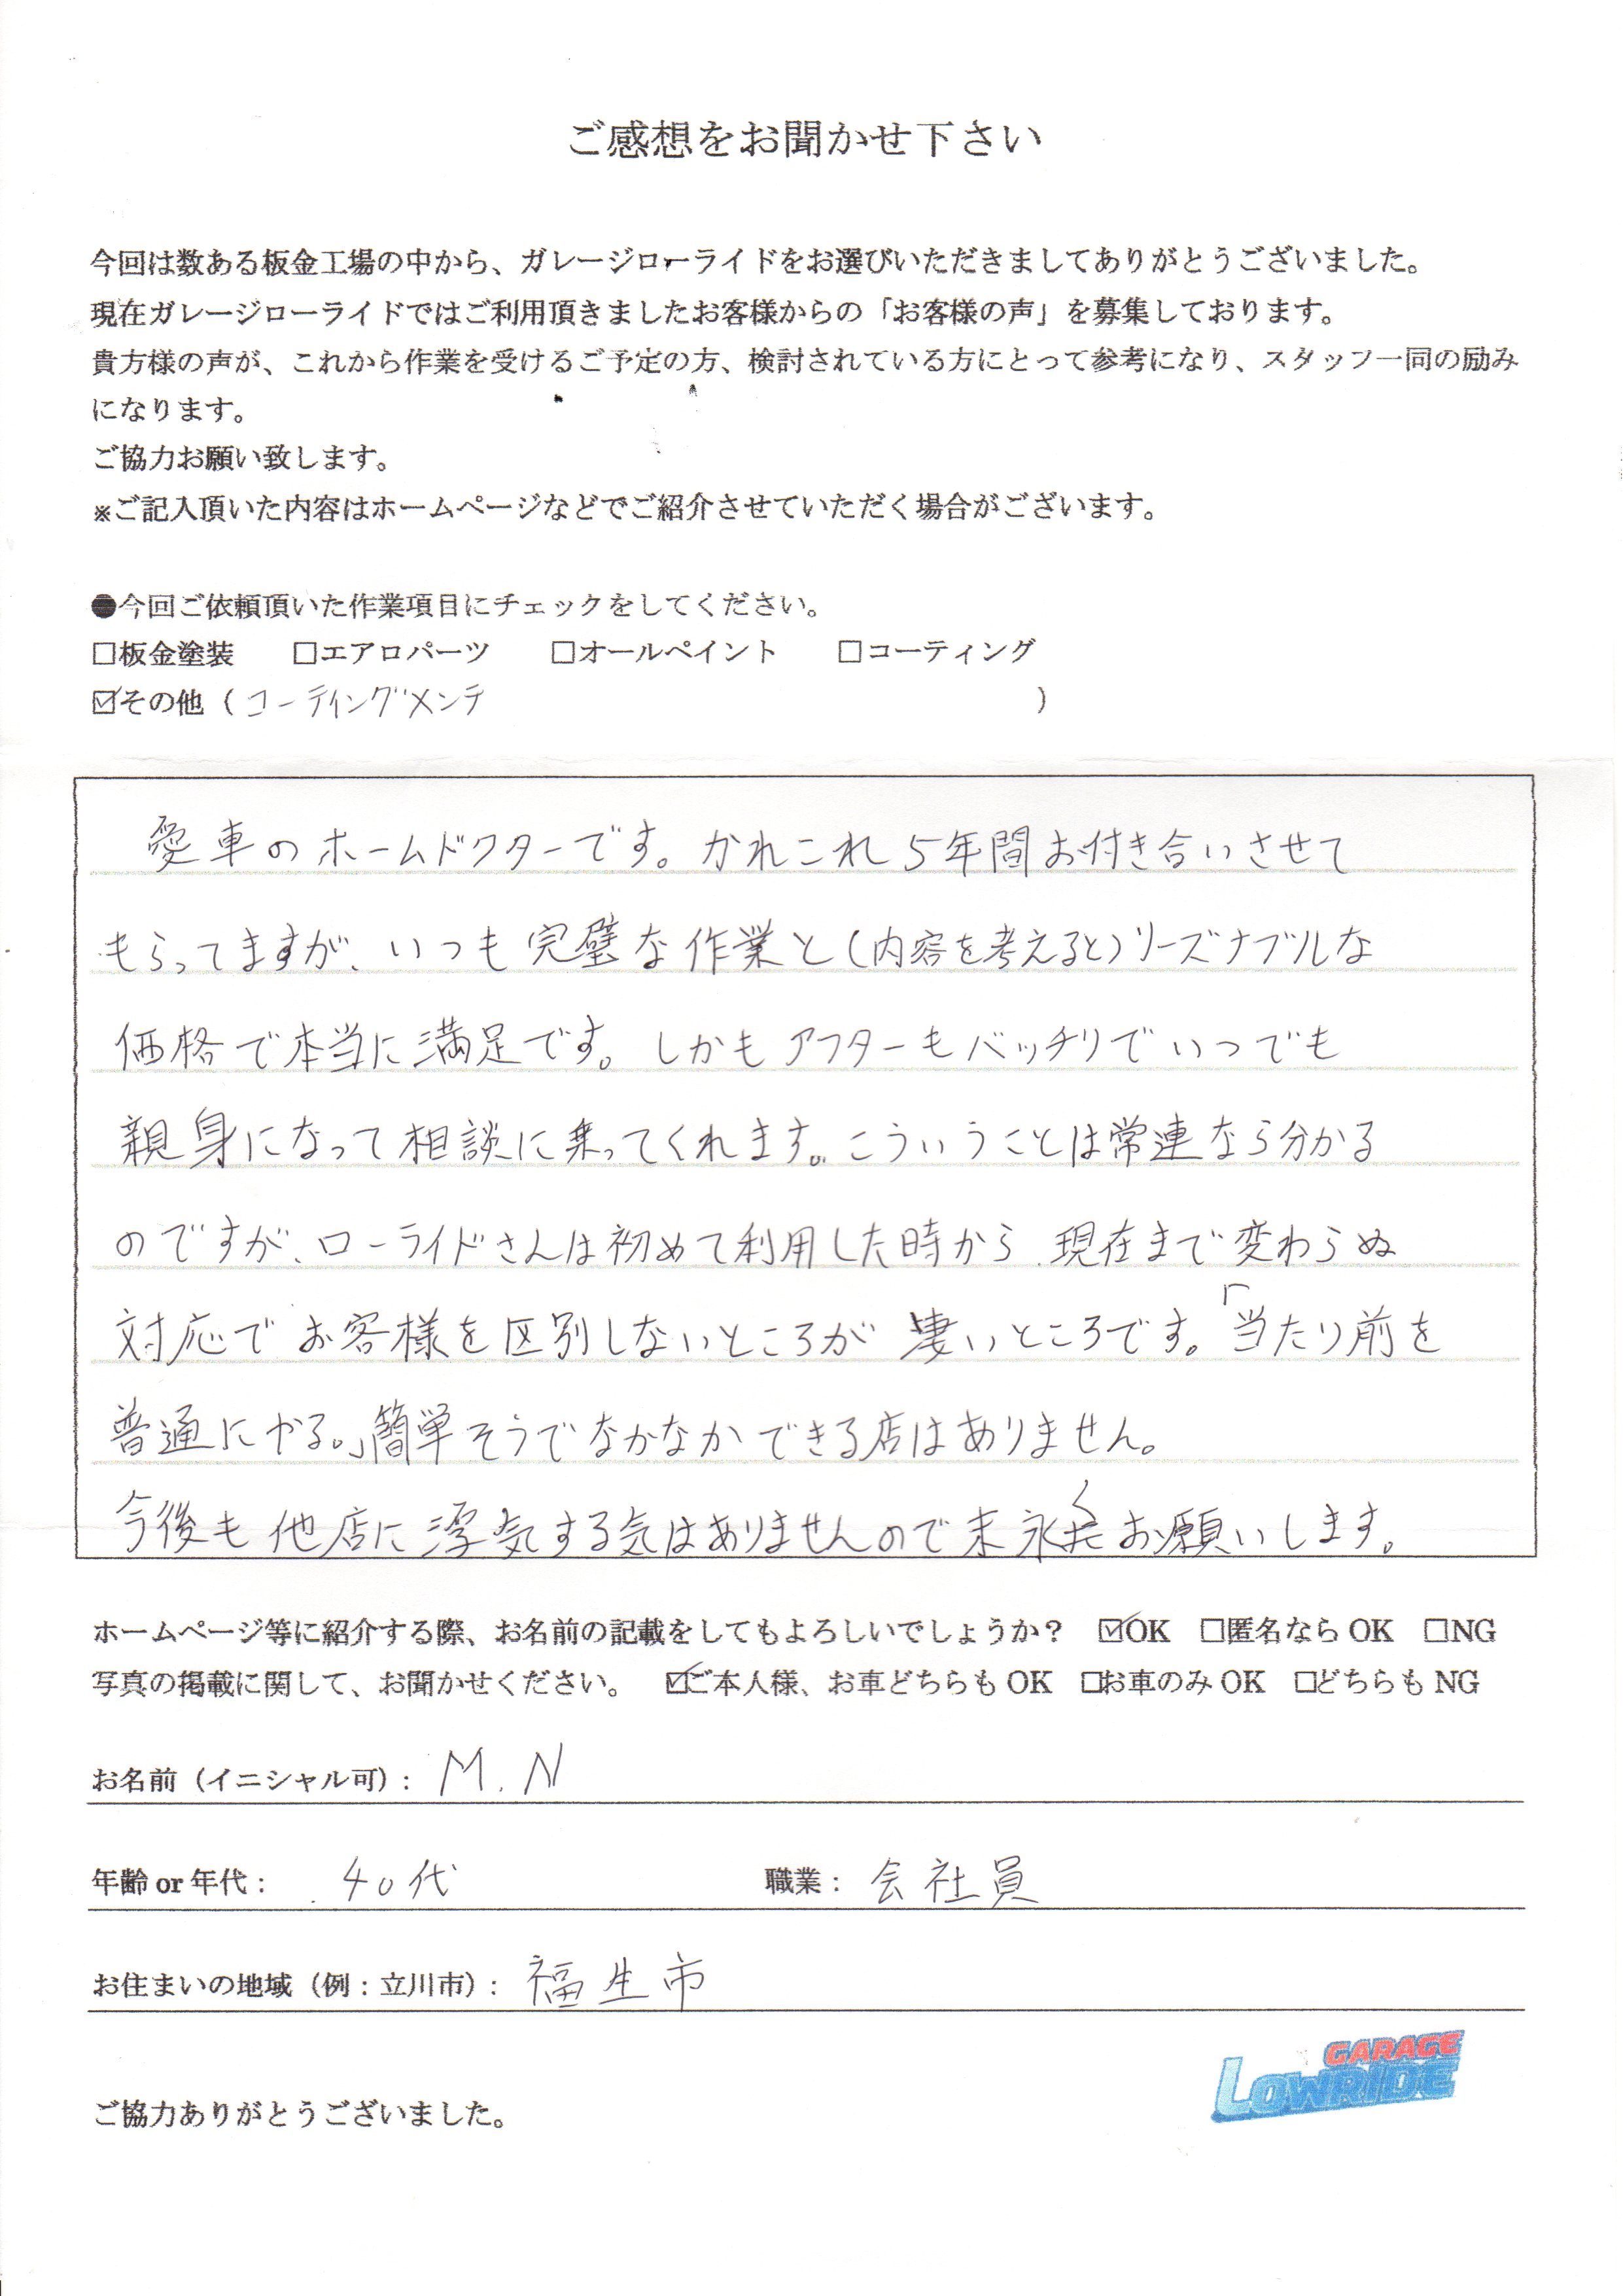 ご感想をお聞かせ下さい
今回は数ある板金工場の中から、ガレージローライドをお選びいただきましてありがとうございました。
現在ガレージローライドではご利用頂きましたお客様からの「お客様の声」を募集しております。
貴方様の声が、これから作業を受けるご予定の方、検討されている方にとって参考になり、スタッフ一同の励み
になります。
ご協力お願い致します。
※ご記入頂いた内容はホームページなどでご紹介させていただく場合がございます。
●今回ご依頼頂いた作業項目にチェックをしてください。
□板金塗装 □エアロパーツ □オールペイント □コーティング
☑その他（コーティングメンテ）
愛車のホームドクターです。かれこれ5年間お付き合いさせて
もらってますが、いつも完璧な作業と（内容を考えると）リーズナブルな
価格で本当に満足です。しかもアフターもバッチリでいつでも
親身になって相談に乗ってくれます。こういうことは常連なら分かる
のですが、ローライドさんは初めて利用した時から、現在まで変わらぬ
対応でお客様を区別しないところが凄いところです。「当たり前を
普通にやる。」簡単そうでなかなかできる店はありません。
今後も他店に浮気する気はありませんので末永くお願いします。
ホームページ等に紹介する際、お名前の記載をしてもよろしいでしょうか？ ☑OK □匿名なら OK □NG
写真の掲載に関して、お聞かせください。 ☑ご本人様、お車どちらも OK □お車のみ OK □どちらも NG
お名前（イニシャル可）： M.N
年齢 or 年代： 40代 職業： 会社員
お住まいの地域（例：立川市）： 福生市
GARAGE
LOWRIDE
ご協力ありがとうございました。